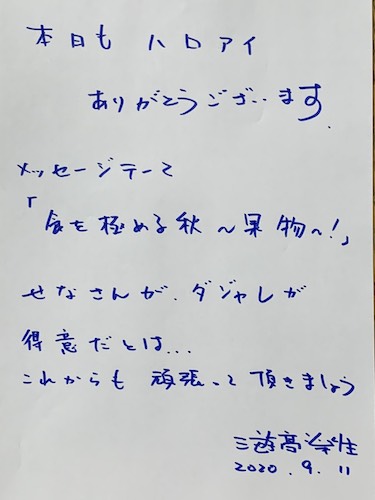 本日も ハロアイ
ありがとうございます.
メッセージテーマ
「食を極める秋〜果物〜!」
せなさんが、ダジャレが
得意だとは...
これからも 頑張って頂きましょう
三遊亭楽生
2020.9.11